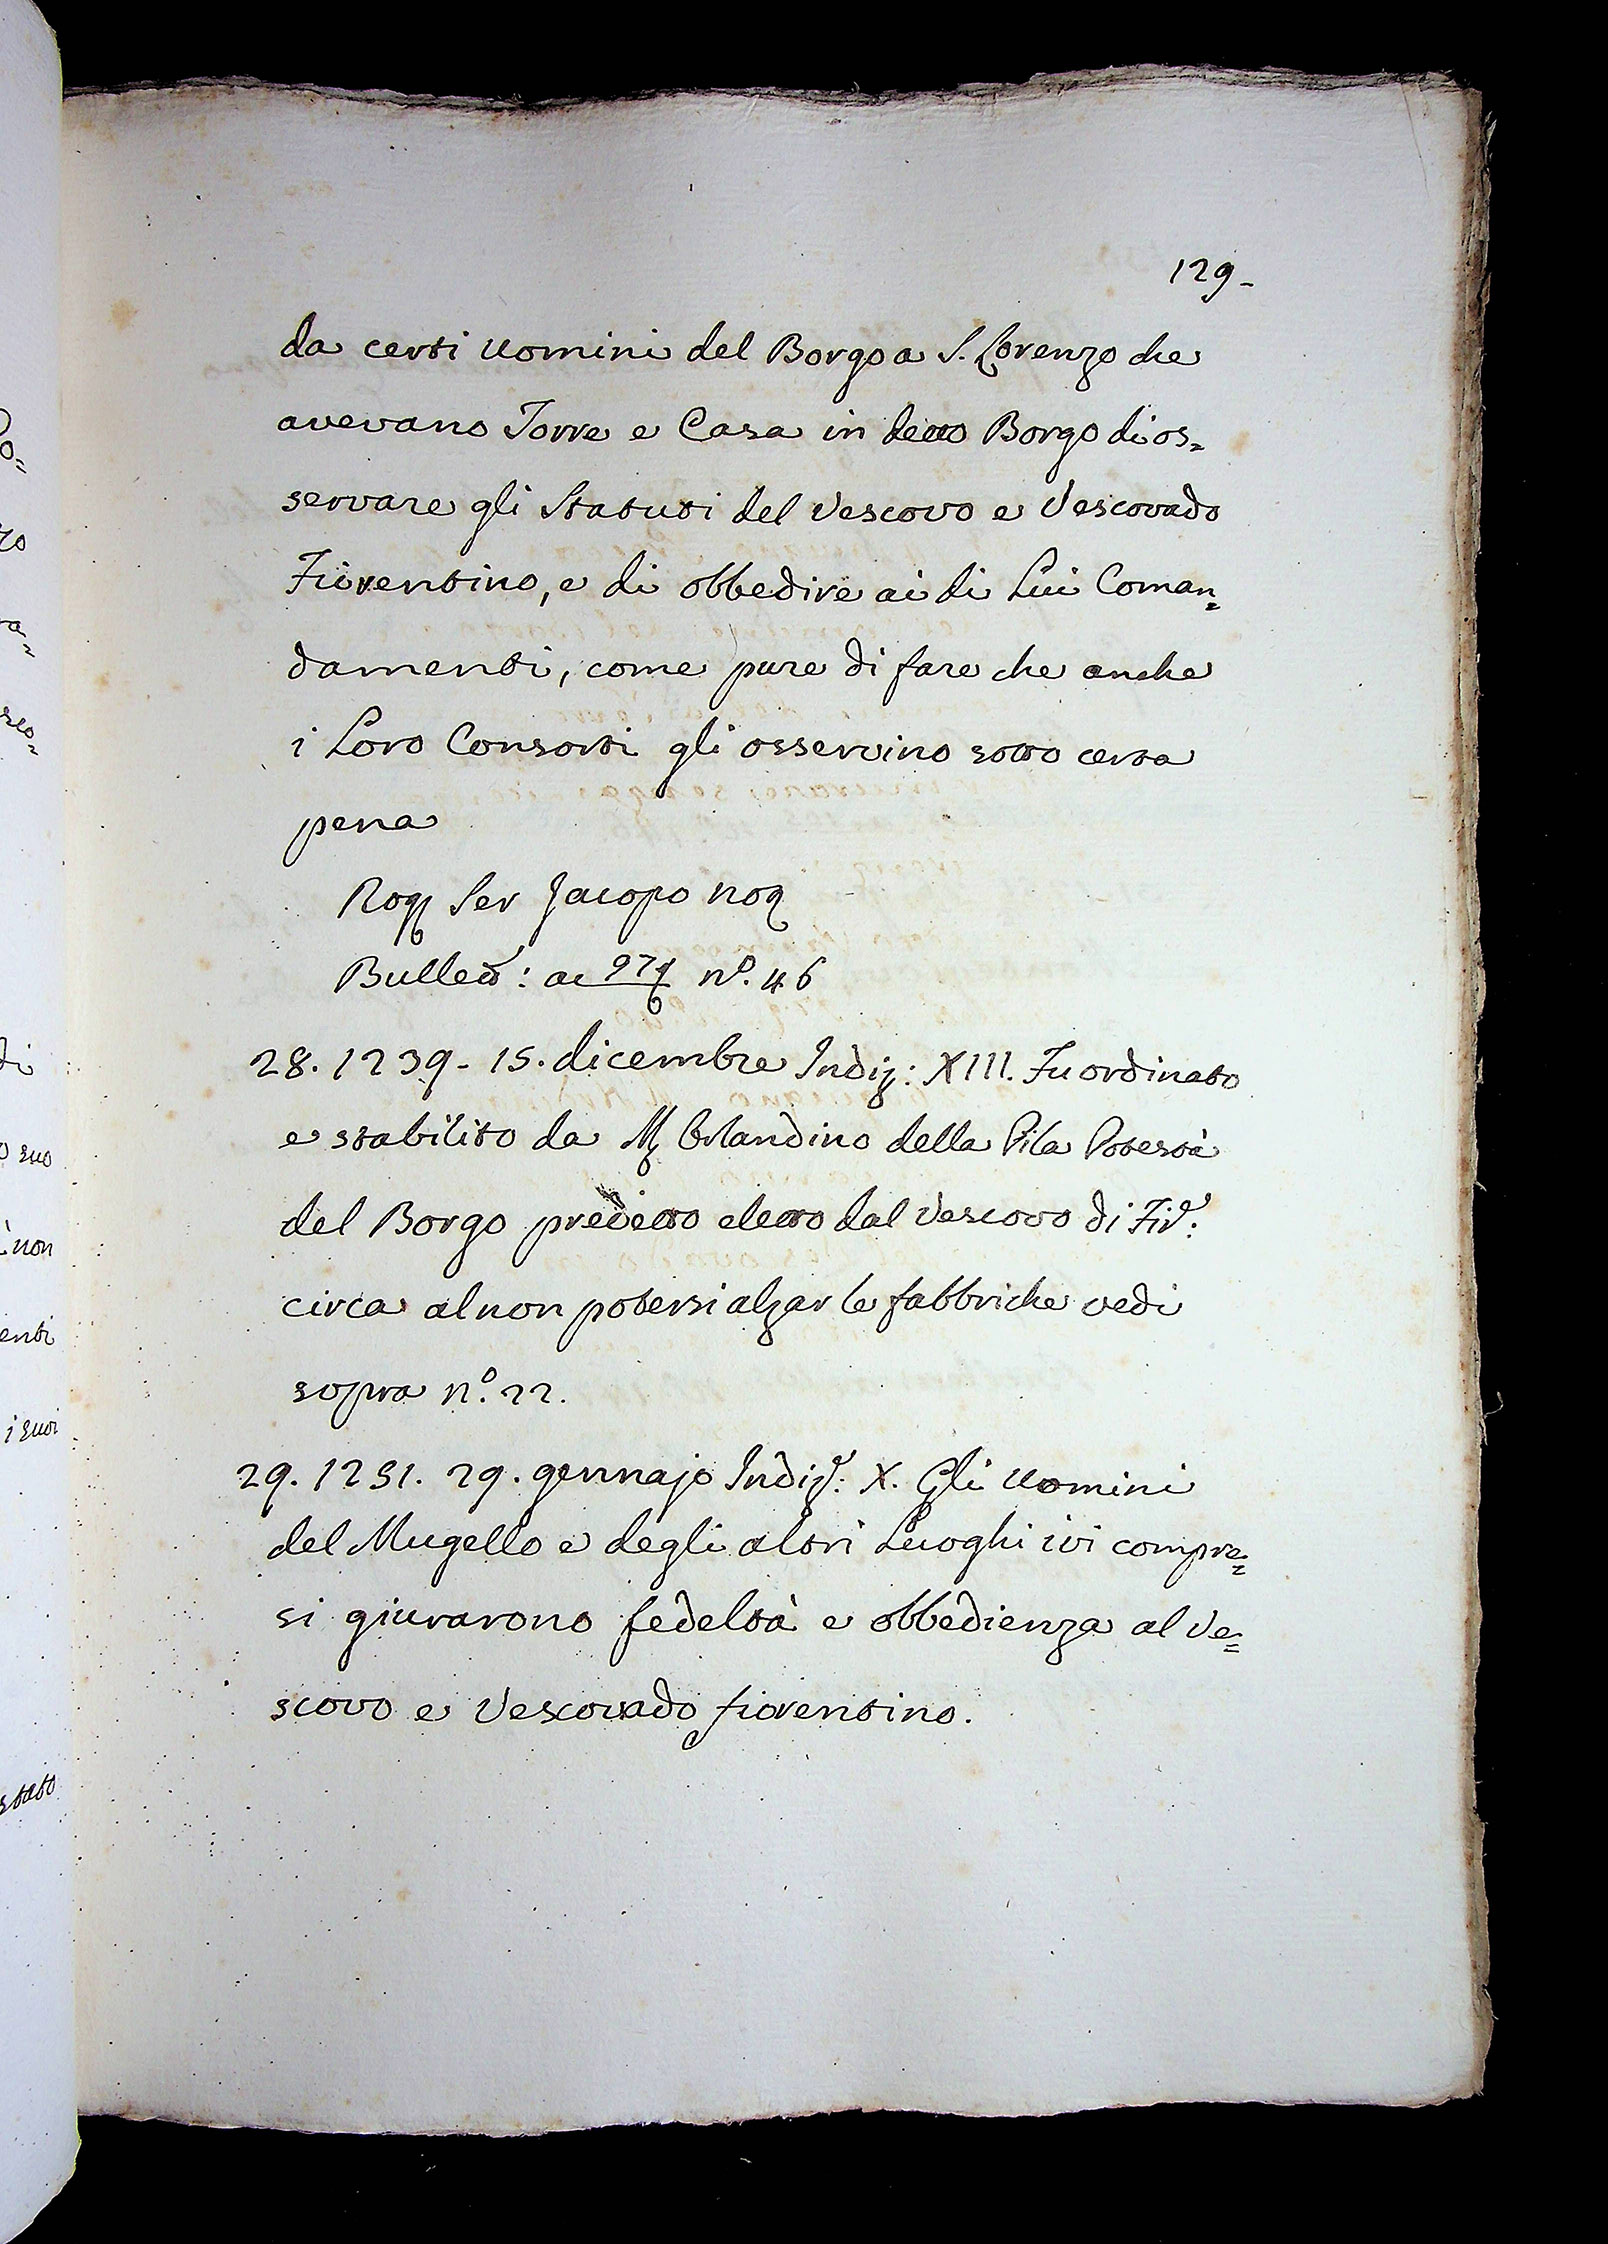 129-
da certi uomini del Borgo a S. Lorenzo che
avevano Torre e Casa in detto Borgo di os=
servare gli Statuti del Vescovo e Vescovado
Fiorentino, e di obbedire ai di Lui Coman=
damenti, come pure di fare che anche
i Loro Consorti gli osservino sotto certa
pena
Rog Ser Jacopo not
Bullett: a 97 nº. 46
28. 1239 - 15. dicembre Indiz: XIII. Fu ordinato
e stabilito da M Orlandino della Pila Potestà
del Borgo predetto eletto dal Vescovo di Fir:
circa al non potersi alzar le fabbriche vedi
sopra nº. 22.
29. 1251. 29. gennajo Indiz: X. Gli uomini
del Mugello e degli altri Luoghi ivi compre=
si giurarono fedeltà e obbedienza al Ve=
scovo e Vescovado fiorentino.